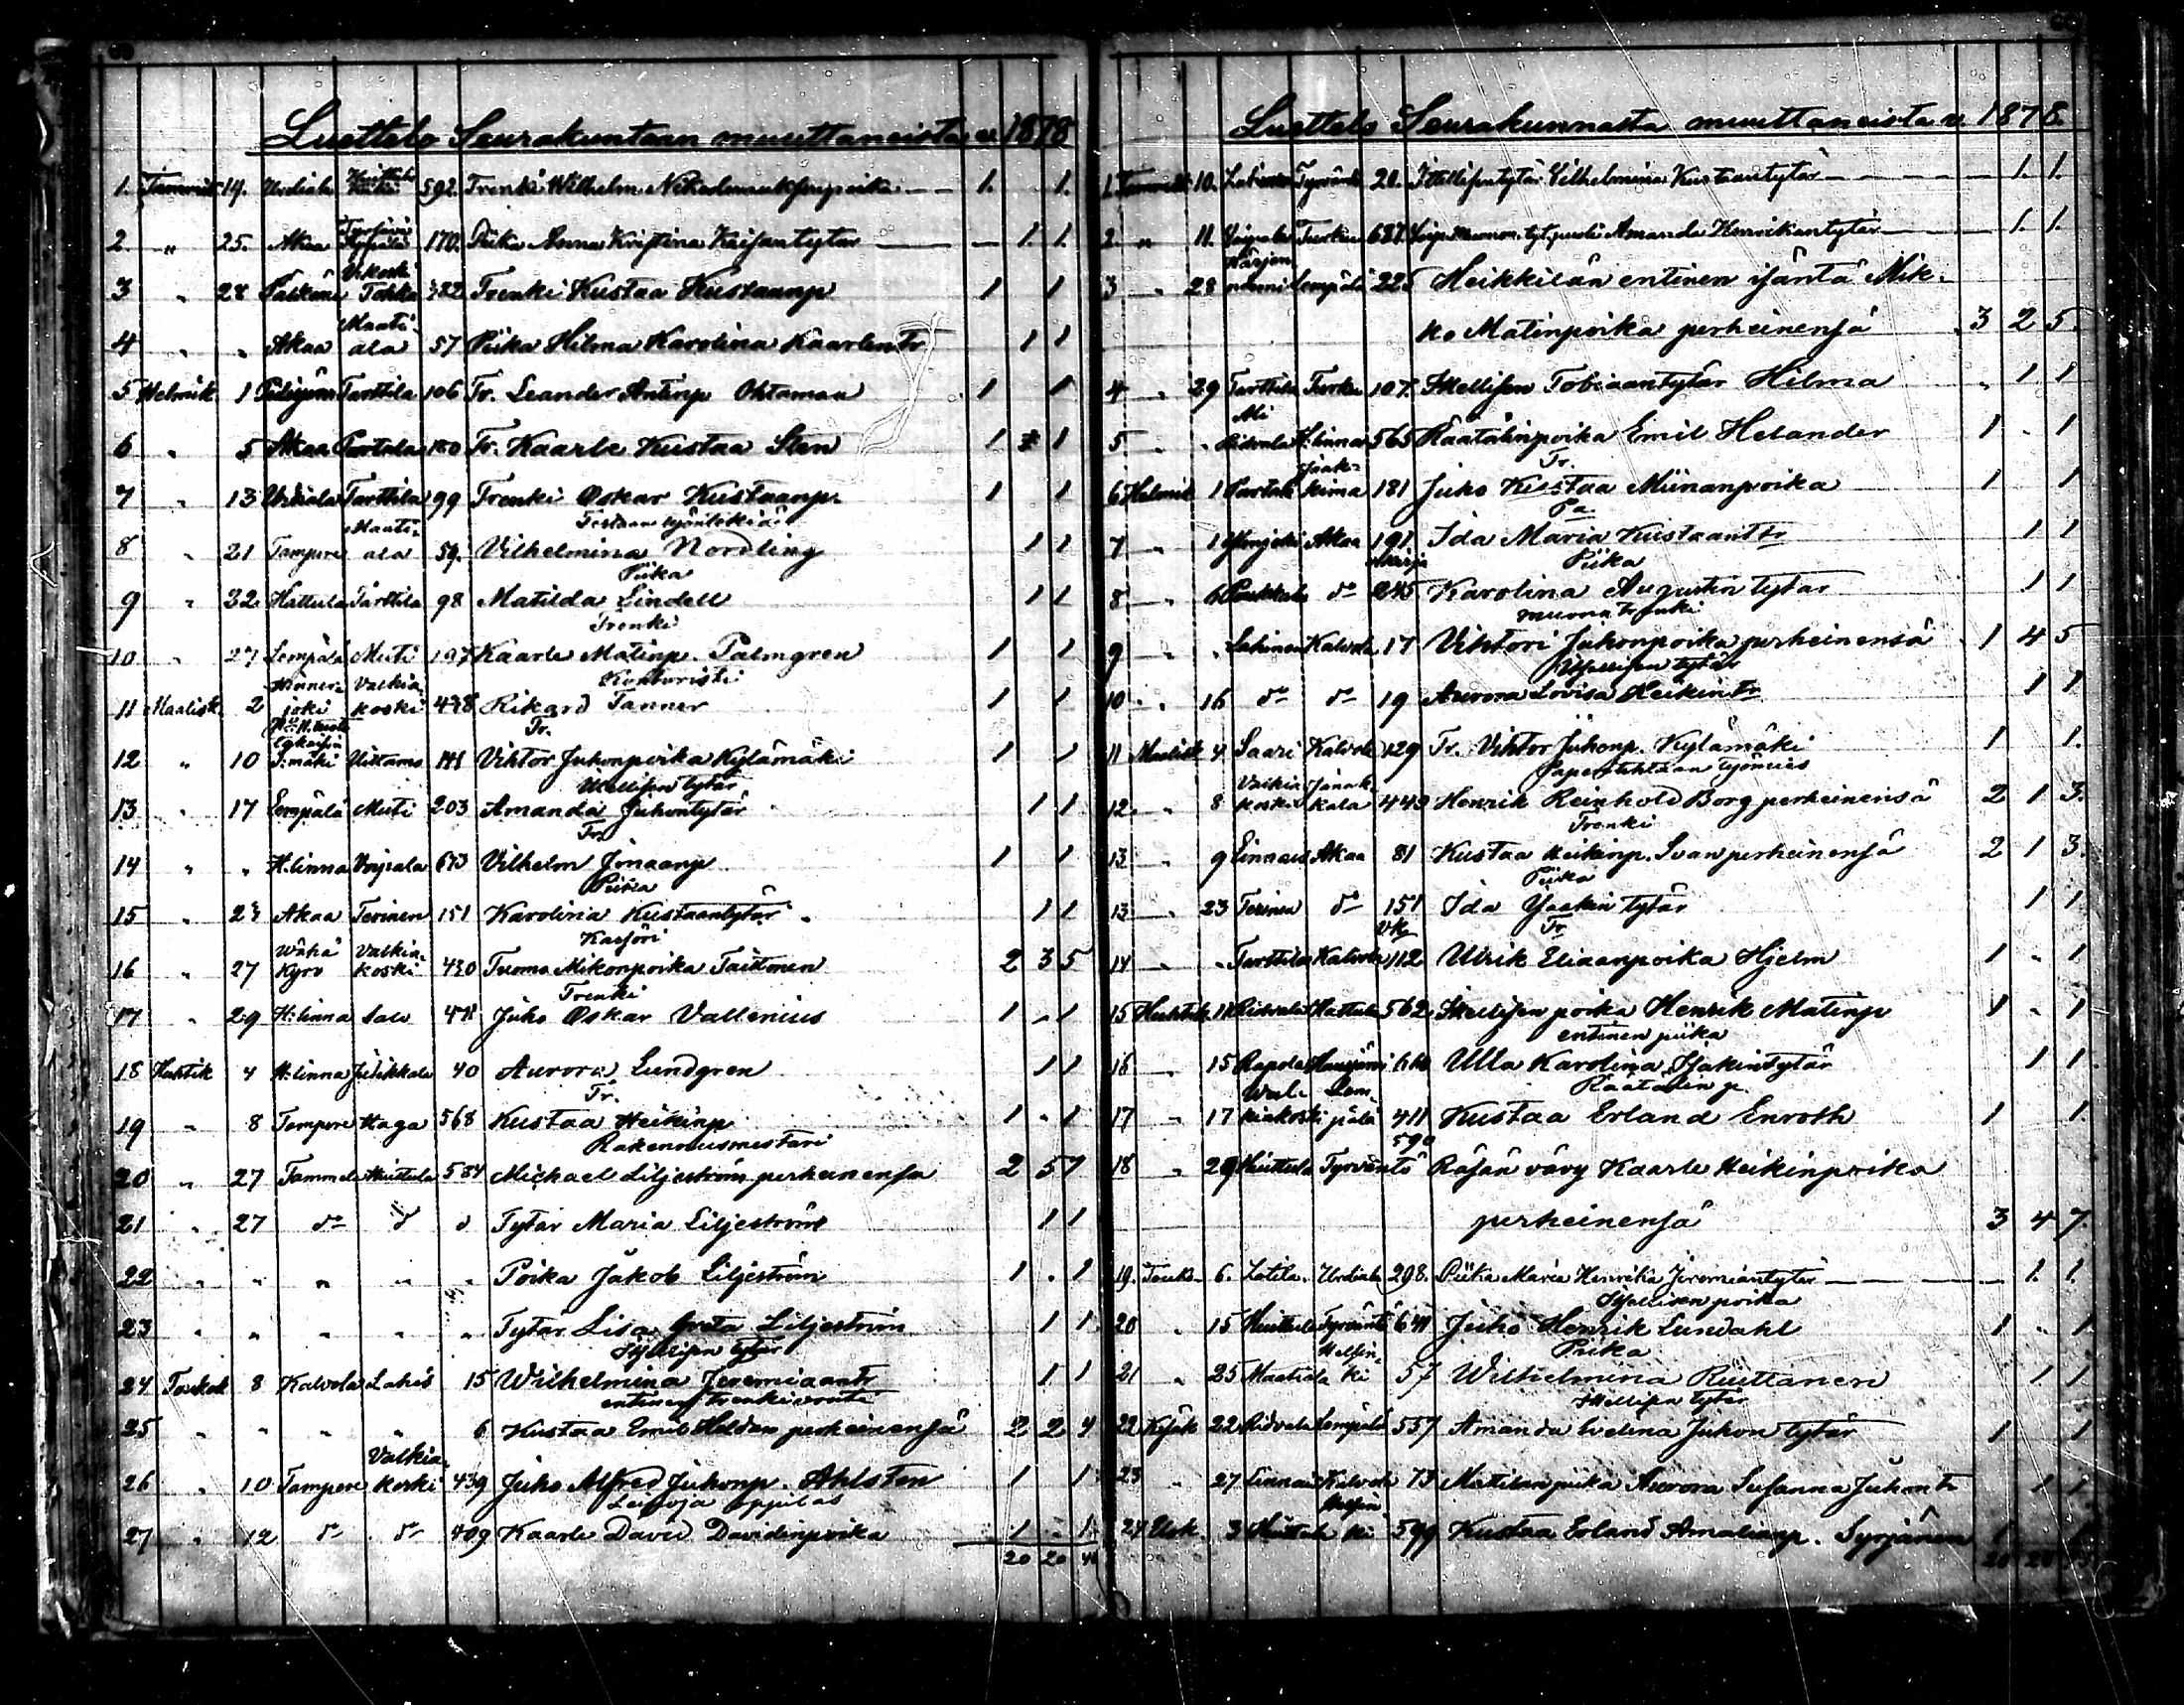 Luettelo Seurakuntaan muuttaneista v. 1878
1. Tammik 14. Urdiala 592. Trenki Wilhelm 1. 1.
2. " 25. Akaa 170. Piika Anna Kristina Kaisantytär 1. 1.
3 " 28 Pälkäne V.koski Tokka 382 Trenki Kustaa Kustaanp 1 1
4 " " Akaa Maatiala 57 Piika Hilma Karolina Kaarlentr 1 1
5 Helmik 1 Tarttila 106 Tr. Leander Antinp Ohtaman 1 1
6 " 5 Akaa Partala 180 Tr. Kaarle Kustaa Sten 1 1
7 " 13 Urdiala Tarttila 99 Trenki Oskar Kustaanp. 1 1
8 " 21 Tampere Maatiala 59. Vilhelmina Nordling 1 1
Piika
9 " 32 Hattula Tarttila 98 Matilda Lindell 1 1
Trenki
10 " 27 Lempälä Muti 197 Kaarle Matinp. Palmgren 1 1
Konturisti
11 Maalisk 2 Kinnerjoki Valkiakoski 438 Rikard Tanner 1 1
Tr.
12 " 10 S:mäki Uittamo 141 Viktor Juhonpoika Kylämäki 1 1
Itsellisen tytär
13 " 17 Lempälä Muti 203 Amanda Juhontytär 1 1
Tr.
14 " " H:linna Voipala 673 Vilhelm Jonaanp 1 1
Piika
15 " 23 Akaa Terinen 151 Karolina Kustaantytär 1 1
16 " 27 Wähä Kyrö Valkiakoski 430 Tuomo Mikonpoika Taittonen 2 3 5
Trenki
17 " 29 H:linna Salo 471 Juho Oskar Vallenius 1 " 1
18 Huhtik 4 H:linna Jutikkala 40 Aurora Lundgren 1 1
Tr.
19 " 8 Tampere Haga 568 Kustaa Heikinp 1 " 1
Rakennusmestari
20 " 27 Tammela Huittula 584 Michael Liljeström perheinensa 2 5 7
21 " 27 do d d Tytär Maria Liljeström 1 1
22 " " " " " Poika Jakob Liljeström 1 " 1
23 " " " " " Tytär Lisa Greta Liljeström 1 1
Itsellisen tytär
24 Toukok 8 Kalvola Lahis 15 Wilhelmina Jeremiaantr 1 1
entinen trenkivouti
25 " " " " 6 Kustaa Emil Heldan perheinensä 2 2 4
26 " 10 Tampere Valkiakoski 439 Juho Alfred Juhonp. Ahlsten 1 1
27 " 12 do do 409 Kaarle David Davidinpoika 1 " 1
20 20 40
Luettelo Seurakunnasta muuttaneista v. 1878.
1. Tammik 10. Lahinen Tyrväntö 20. Itsellisentytär Vilhelmina Kustaantytär 1. 1.
2. " 11. Voipala Turku 687. Amanda Henrikantytär 1. 1.
3 " 28 Kärjenniemi Lempälä 225 Heikkilän entinen isäntä Mik-
ko Matinpoika perheinensä 3 2 5
4 " 29 Tarttila Turku 107. Itsellisen Tobiaantytär Hilma 1 1
5 " " Ali Ridvala H:linna 565 Räätälinpoika Emil Helander 1 " 1
Tr.
6 Helmik 1 Partala 181 Juho Kustaa Miinanpoika 1 1
Pa.
7 " 1 Akaa 191 Ida Maria Kustaantr 1 1
Piika
8 " 6 do 245 Karolina Augustin tytär 1 1
9 " " Lahinen Kalvola 17 Viktori Juhonpoika perheinensä 1 4 5
Itsellisen tytär
10 " 16 do do 19 Aurora Lovisa Heikintr 1 1
11 Maalisk 4 Saari Kalvola 129 Tr. Viktor Juhonp. Kylämäki 1 1.
Paperitehtaan työmies
12 " 8 Valkiakoski Janakkala 443 Henrik Reinhold Borg perheinensä 2 1 3.
Trenki
13 " 9 Linnais Akaa 81 Kustaa Heikinp. Svan perheinensä 2 1 3.
Piika
13 " 23 Terinen do 151 Ida Isaakin tytär 1 1
Tr
14 " " Tarttila Kalvola 112 Ulrik Eliaanpoika Hjelm 1 " 1
15 Huhtik 11 Ridvala Hattula 562 Itsellisen poika Henrik Matinp 1 " 1
entinen piika
16 " 15 Rapola Ulla Karolina Isakintytär 1 1
Räätälin p.
17 " 17 Walkiakoski Lempälä 411 Kustaa Erland Enroth 1 1.
18 " 29 Huittula Tyrväntö 590 Räsän vävy Kaarle Heikinpoika
perheinensä 3 4 7.
19. Touk 6. Lotila Urdiala 298. Piika Maria Henrika Jeremiantytär 1. 1.
Itsellisen poika
20 " 15 Huittula Tyrväntö 641 Juho Henrik Lundahl 1 " 1
Piika
21 " 25 Maatiala Helsinki 57 Wilhelmina Ruuttanen 1 1
Itsellisen tytär
22 Kesäk 22 Ridvala Lempälä 557 Amanda Evelina Juhon tytär 1 1
23 " 27 Linnais Kalvola 73 Aurora Susanna Juhontr 1 1
24 Elok 3 Huittula Helsinki 599 Kustaa Erland Amaliaanp. Syrjänen